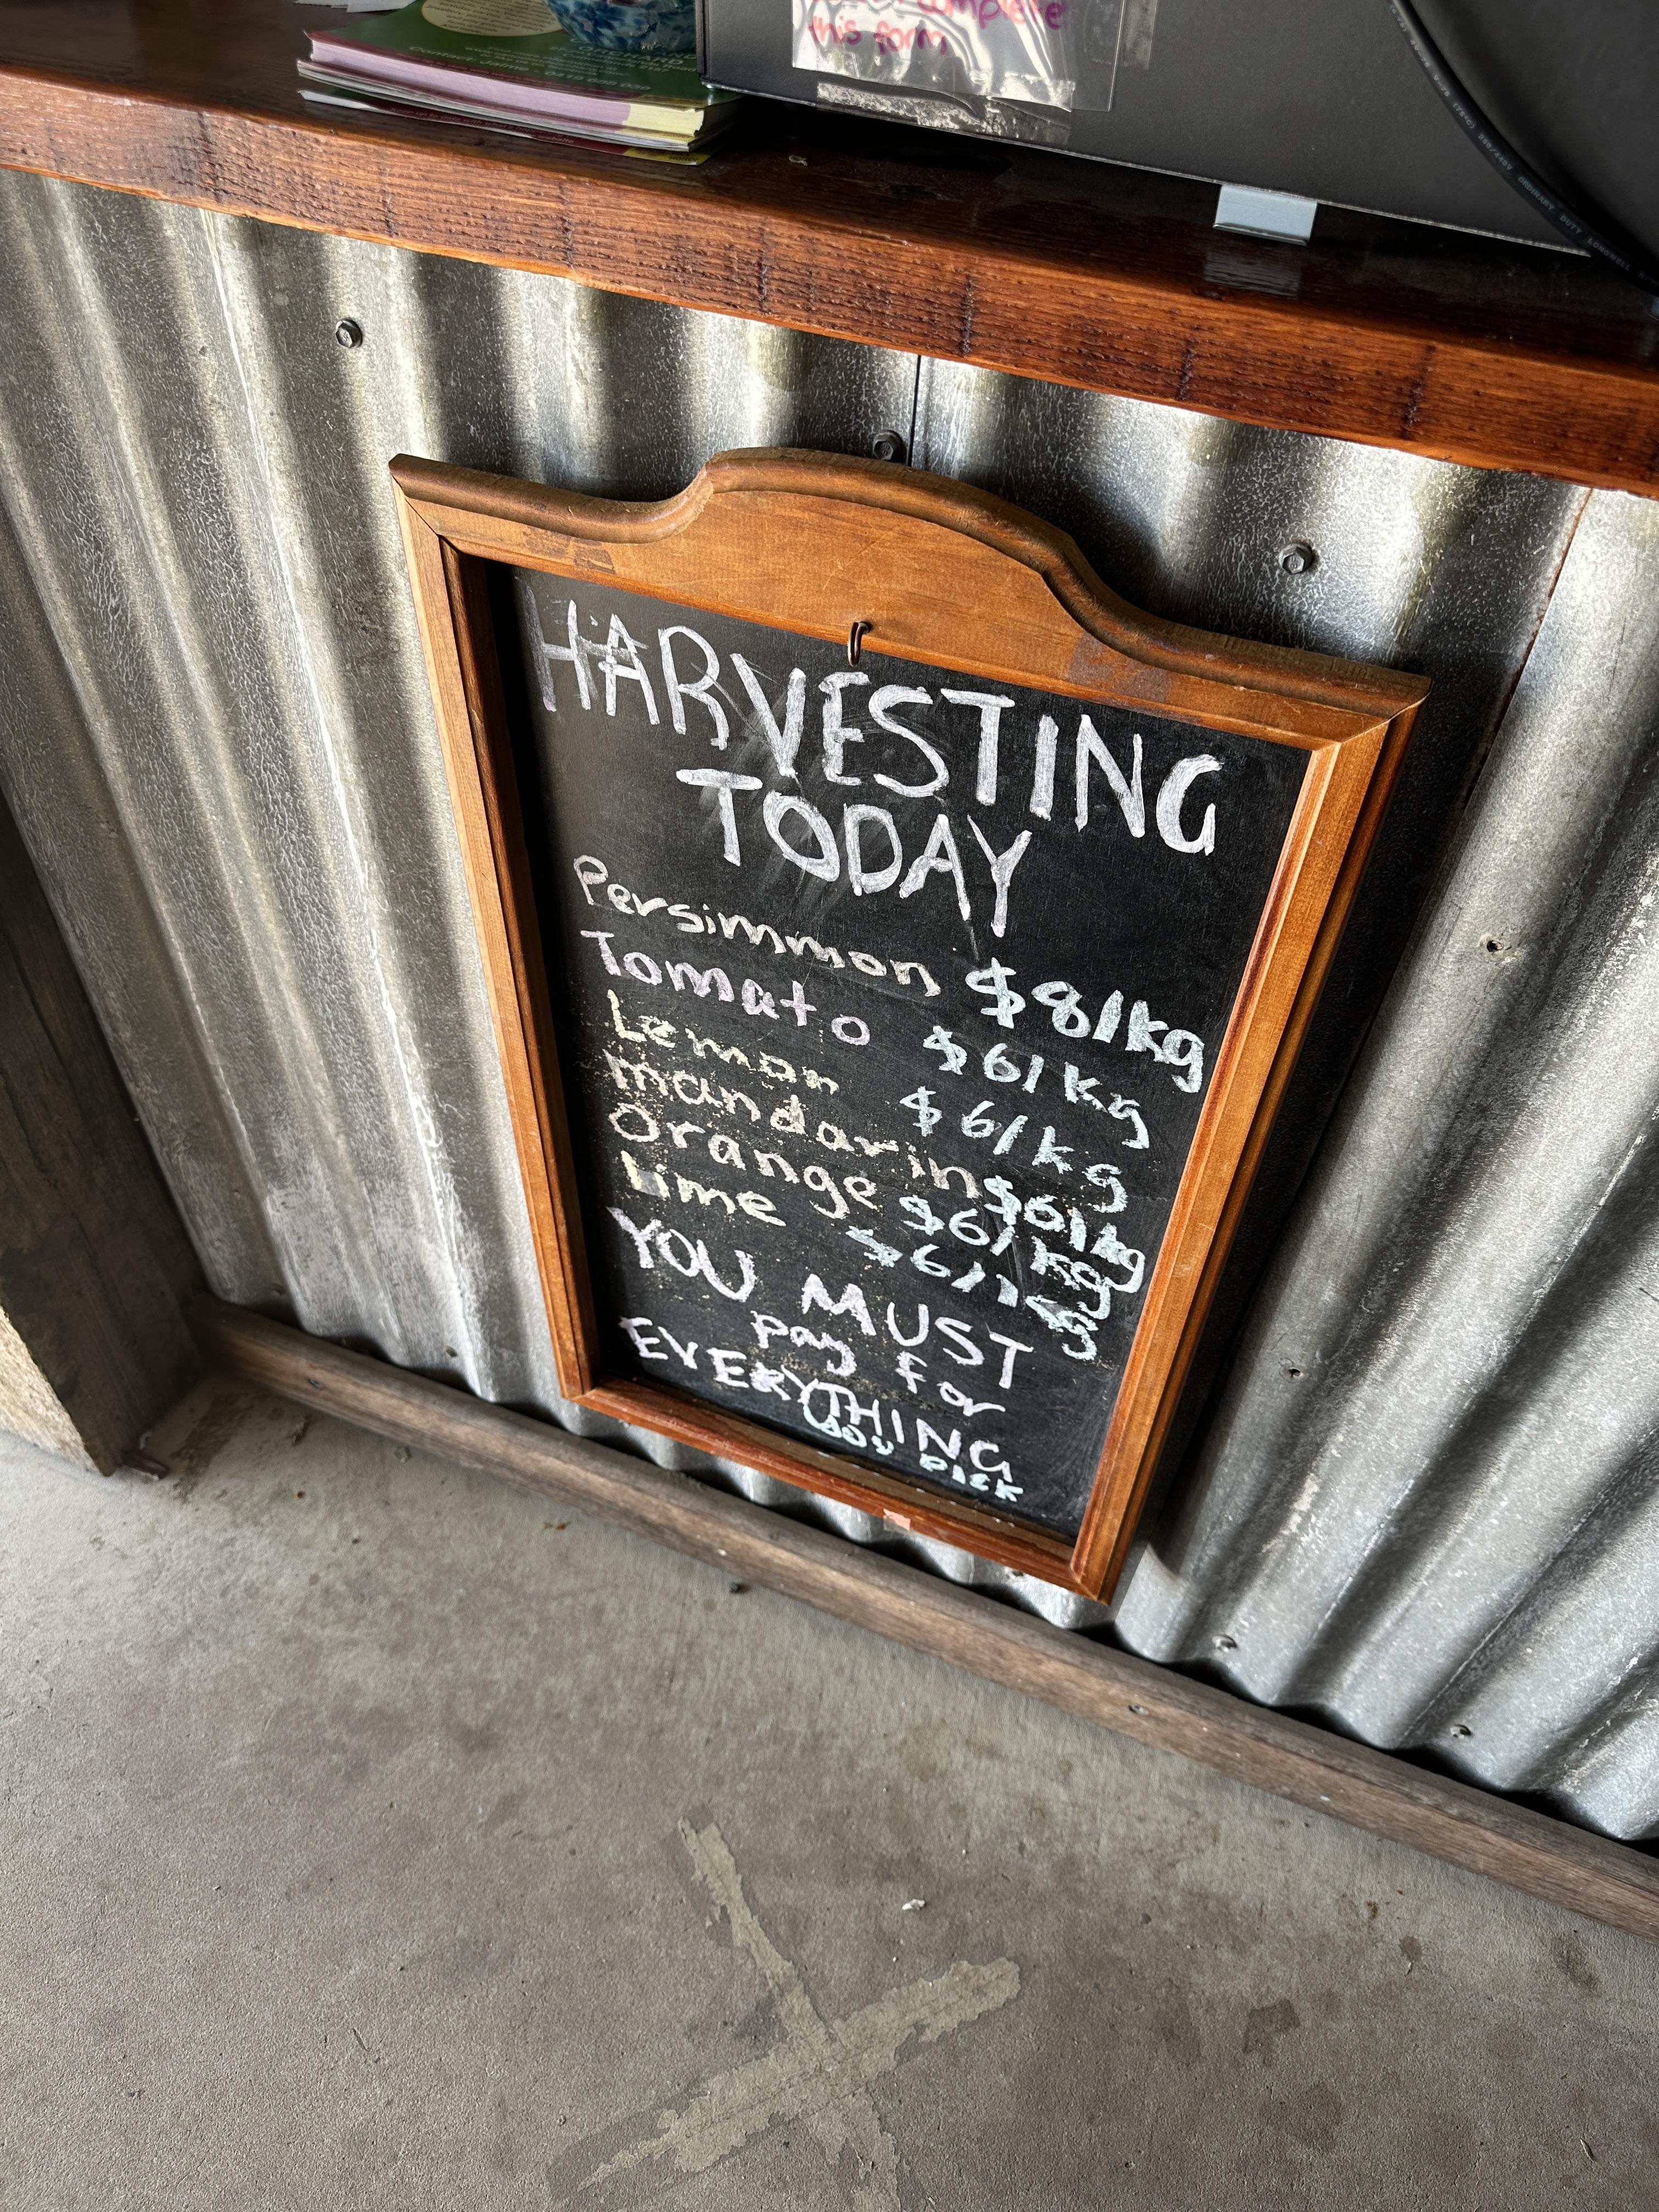 complete
this form
HARVESTING
TODAY
Persimmon $8/kg
Tomato $6/kg
Lemon $6/kg
Mandarin $6/kg
Orange $6/kg
lime $6/kg
YOU MUST
pay for
EVERYTHING
you pick
ORDINARY DUTY